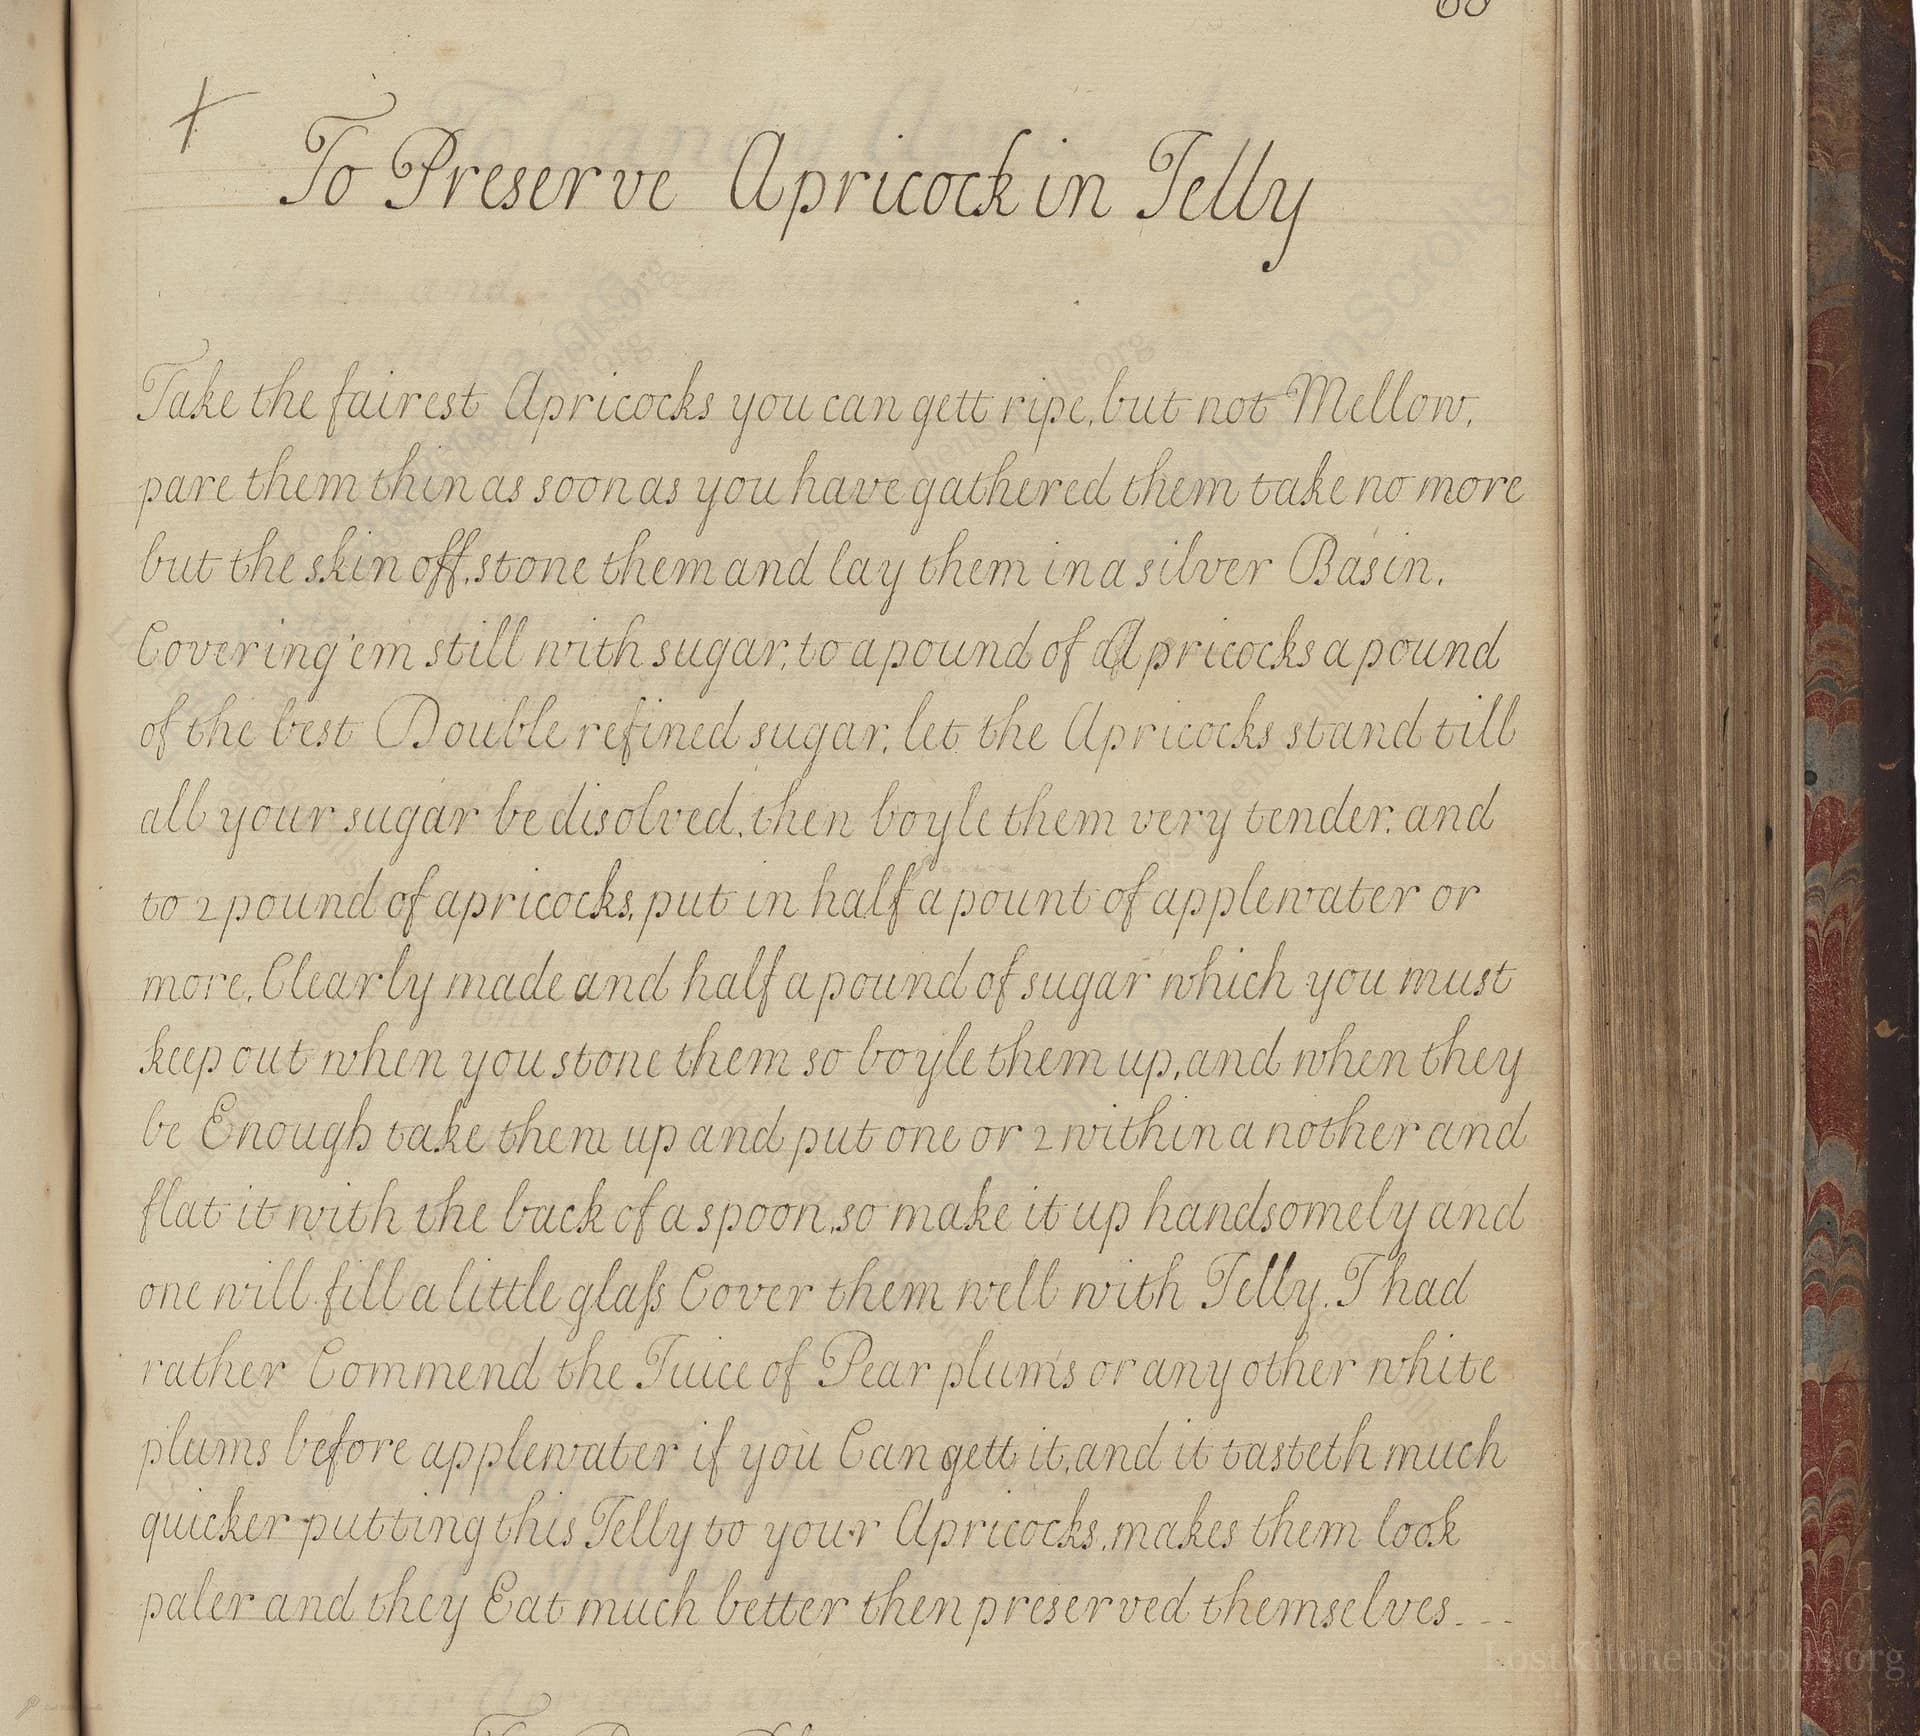 To Preserve Apricock in Jelly
Take the fairest Apricocks you can gett ripe, but not Mellow,
pare them thin as soon as you have gathered them take no more
but the skin off, stone them and lay them in a silver Basin.
Covering 'em still with sugar, to a pound of Apricocks a pound
of the best Double refined sugar, let the Apricocks stand till
all your sugar be disolved, then boyle them very tender. and
to 2 pound of apricocks, put in half a pount of applewater or
more, Clearly made and half a pound of sugar which you must
keep out when you stone them so boyle them up, and when they
be Enough take them up and put one or 2 within a nother and
flat it with the back of a spoon, so make it up handsomely and
one will fill a little glaſs Cover them well with Jelly. I had
rather Commend the Juice of Pear plums or any other white
plums before applewater if you Can gett it, and it tasteth much
quicker putting this Jelly to your Apricocks, makes them look
paler and they Eat much better then preserved themselves - - -
LostKitchenScrolls.org